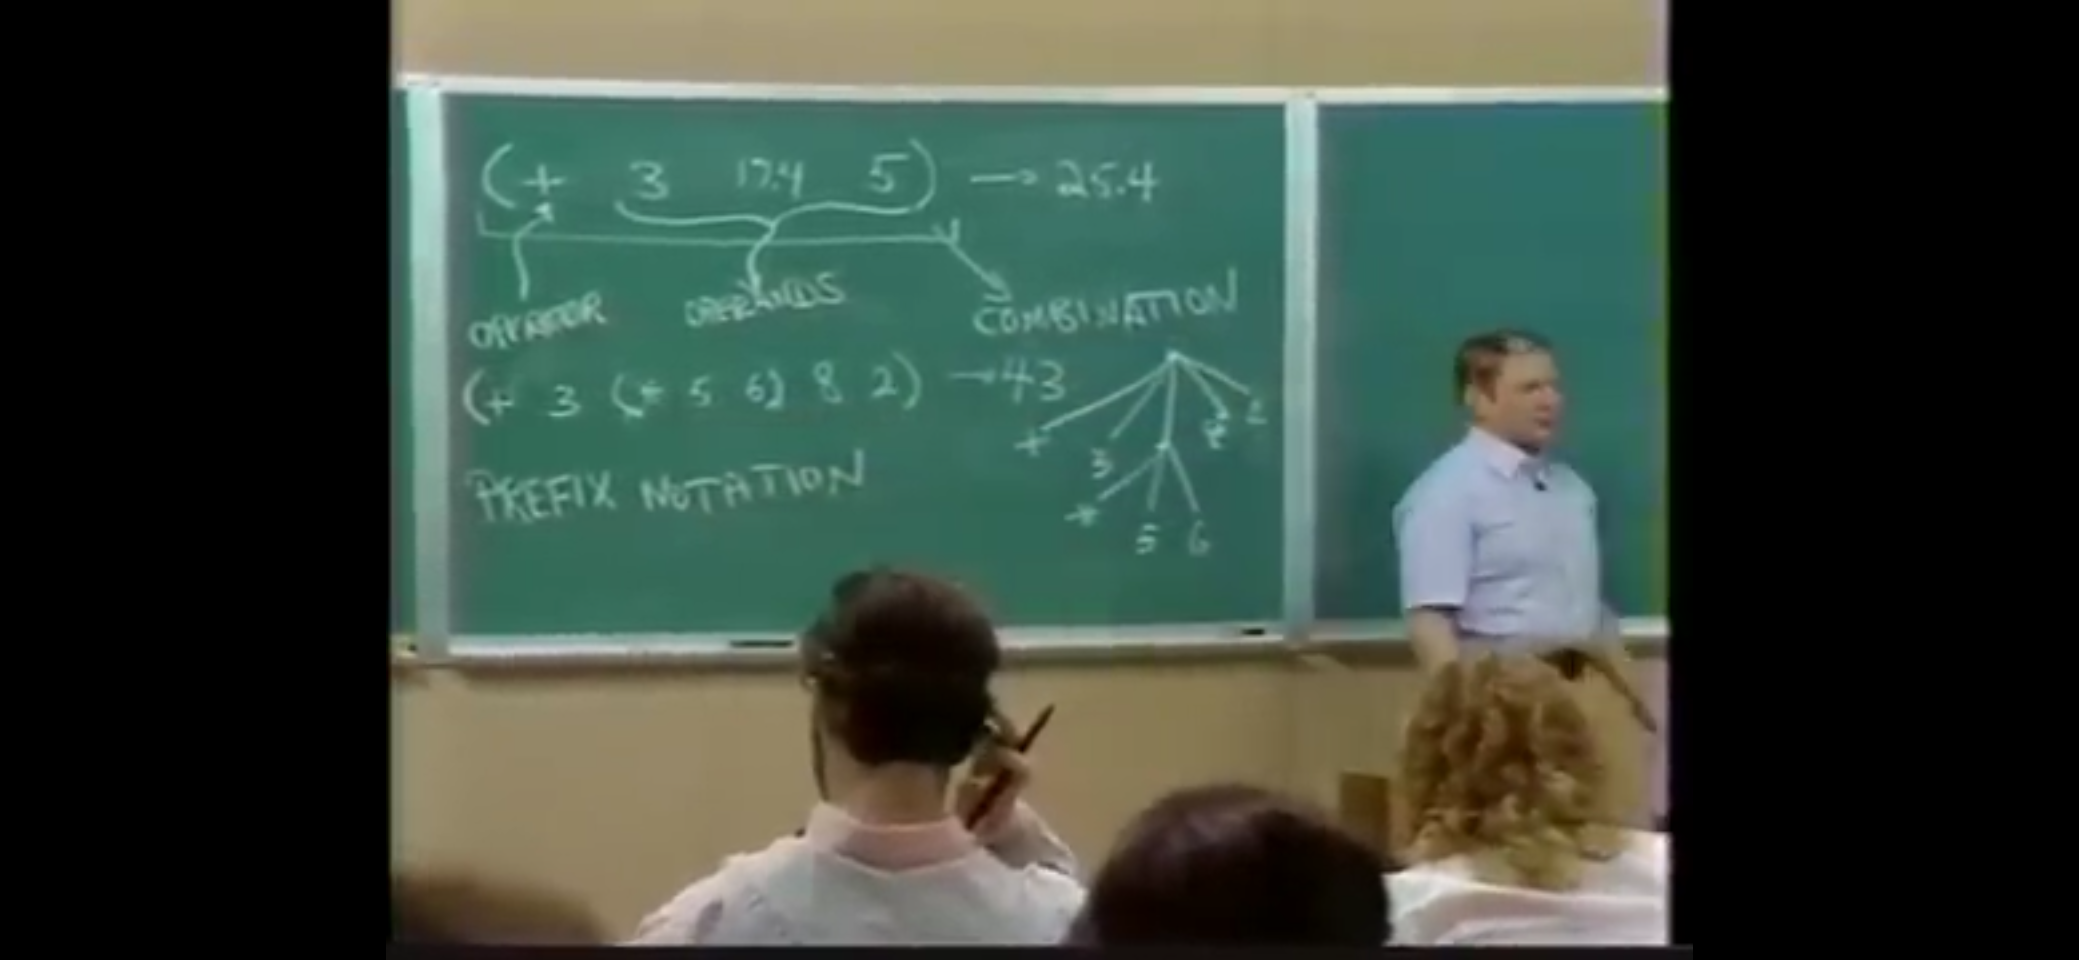 (+ 3 17.4 5) → 25.4
OPERATOR OPERANDS COMBINATION
(+ 3 (* 5 6) 8 2) → 43
PREFIX NOTATION
+ 3 8 2
* 5 6